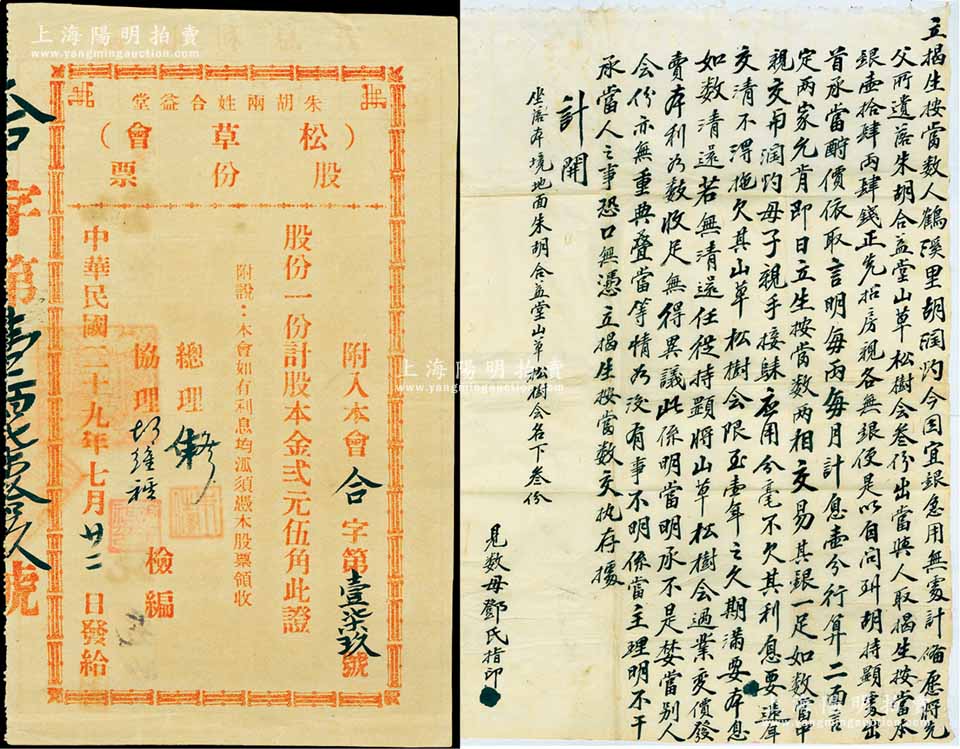 上海陽明拍賣
www.yangmingauction.com
朱胡兩姓合益堂
（松草會）
股份票
附入本會合字第壹柒玖號
股份一份計股本金弍元伍角此證
附說：本會如有利息均派須憑本股票領收
總理
協理
檢編
中華民國二十九年七月廿二日發給
合字第
號
上海陽明拍賣
www.yangmingauction.com
立揭生按當数人鶴溪里胡润灼今因宜銀急用無處計偹愿將先
父所遺落朱胡合益堂山草松樹会叁份出當與人取揭生按當本
銀壹拾肆両肆錢正先招房親各無銀便是以自问到胡持顕處出
首承當酧價依取言明每両每月計息壹分行算二面言
定両家允肯即日立生按當数両相交易其銀一足如数當中
親交用润灼母子親手接歸应用分毫不欠其利息要週年
交清不淂拖欠其山草松樹会限至壹年之久期滿要本息
如数清還若無清還任從持顕將山草松樹会過業变價發
賣本利为数收足無得異議此係明當明承不是婪當别人
会份亦無重典叠當等情为後有事不明係當主理明不干
承當人之事恐口無憑立揭生按當数交执存據
計開
坐落本境地面朱胡合益堂山草松樹会名下叁份
見数母鄧氏指印